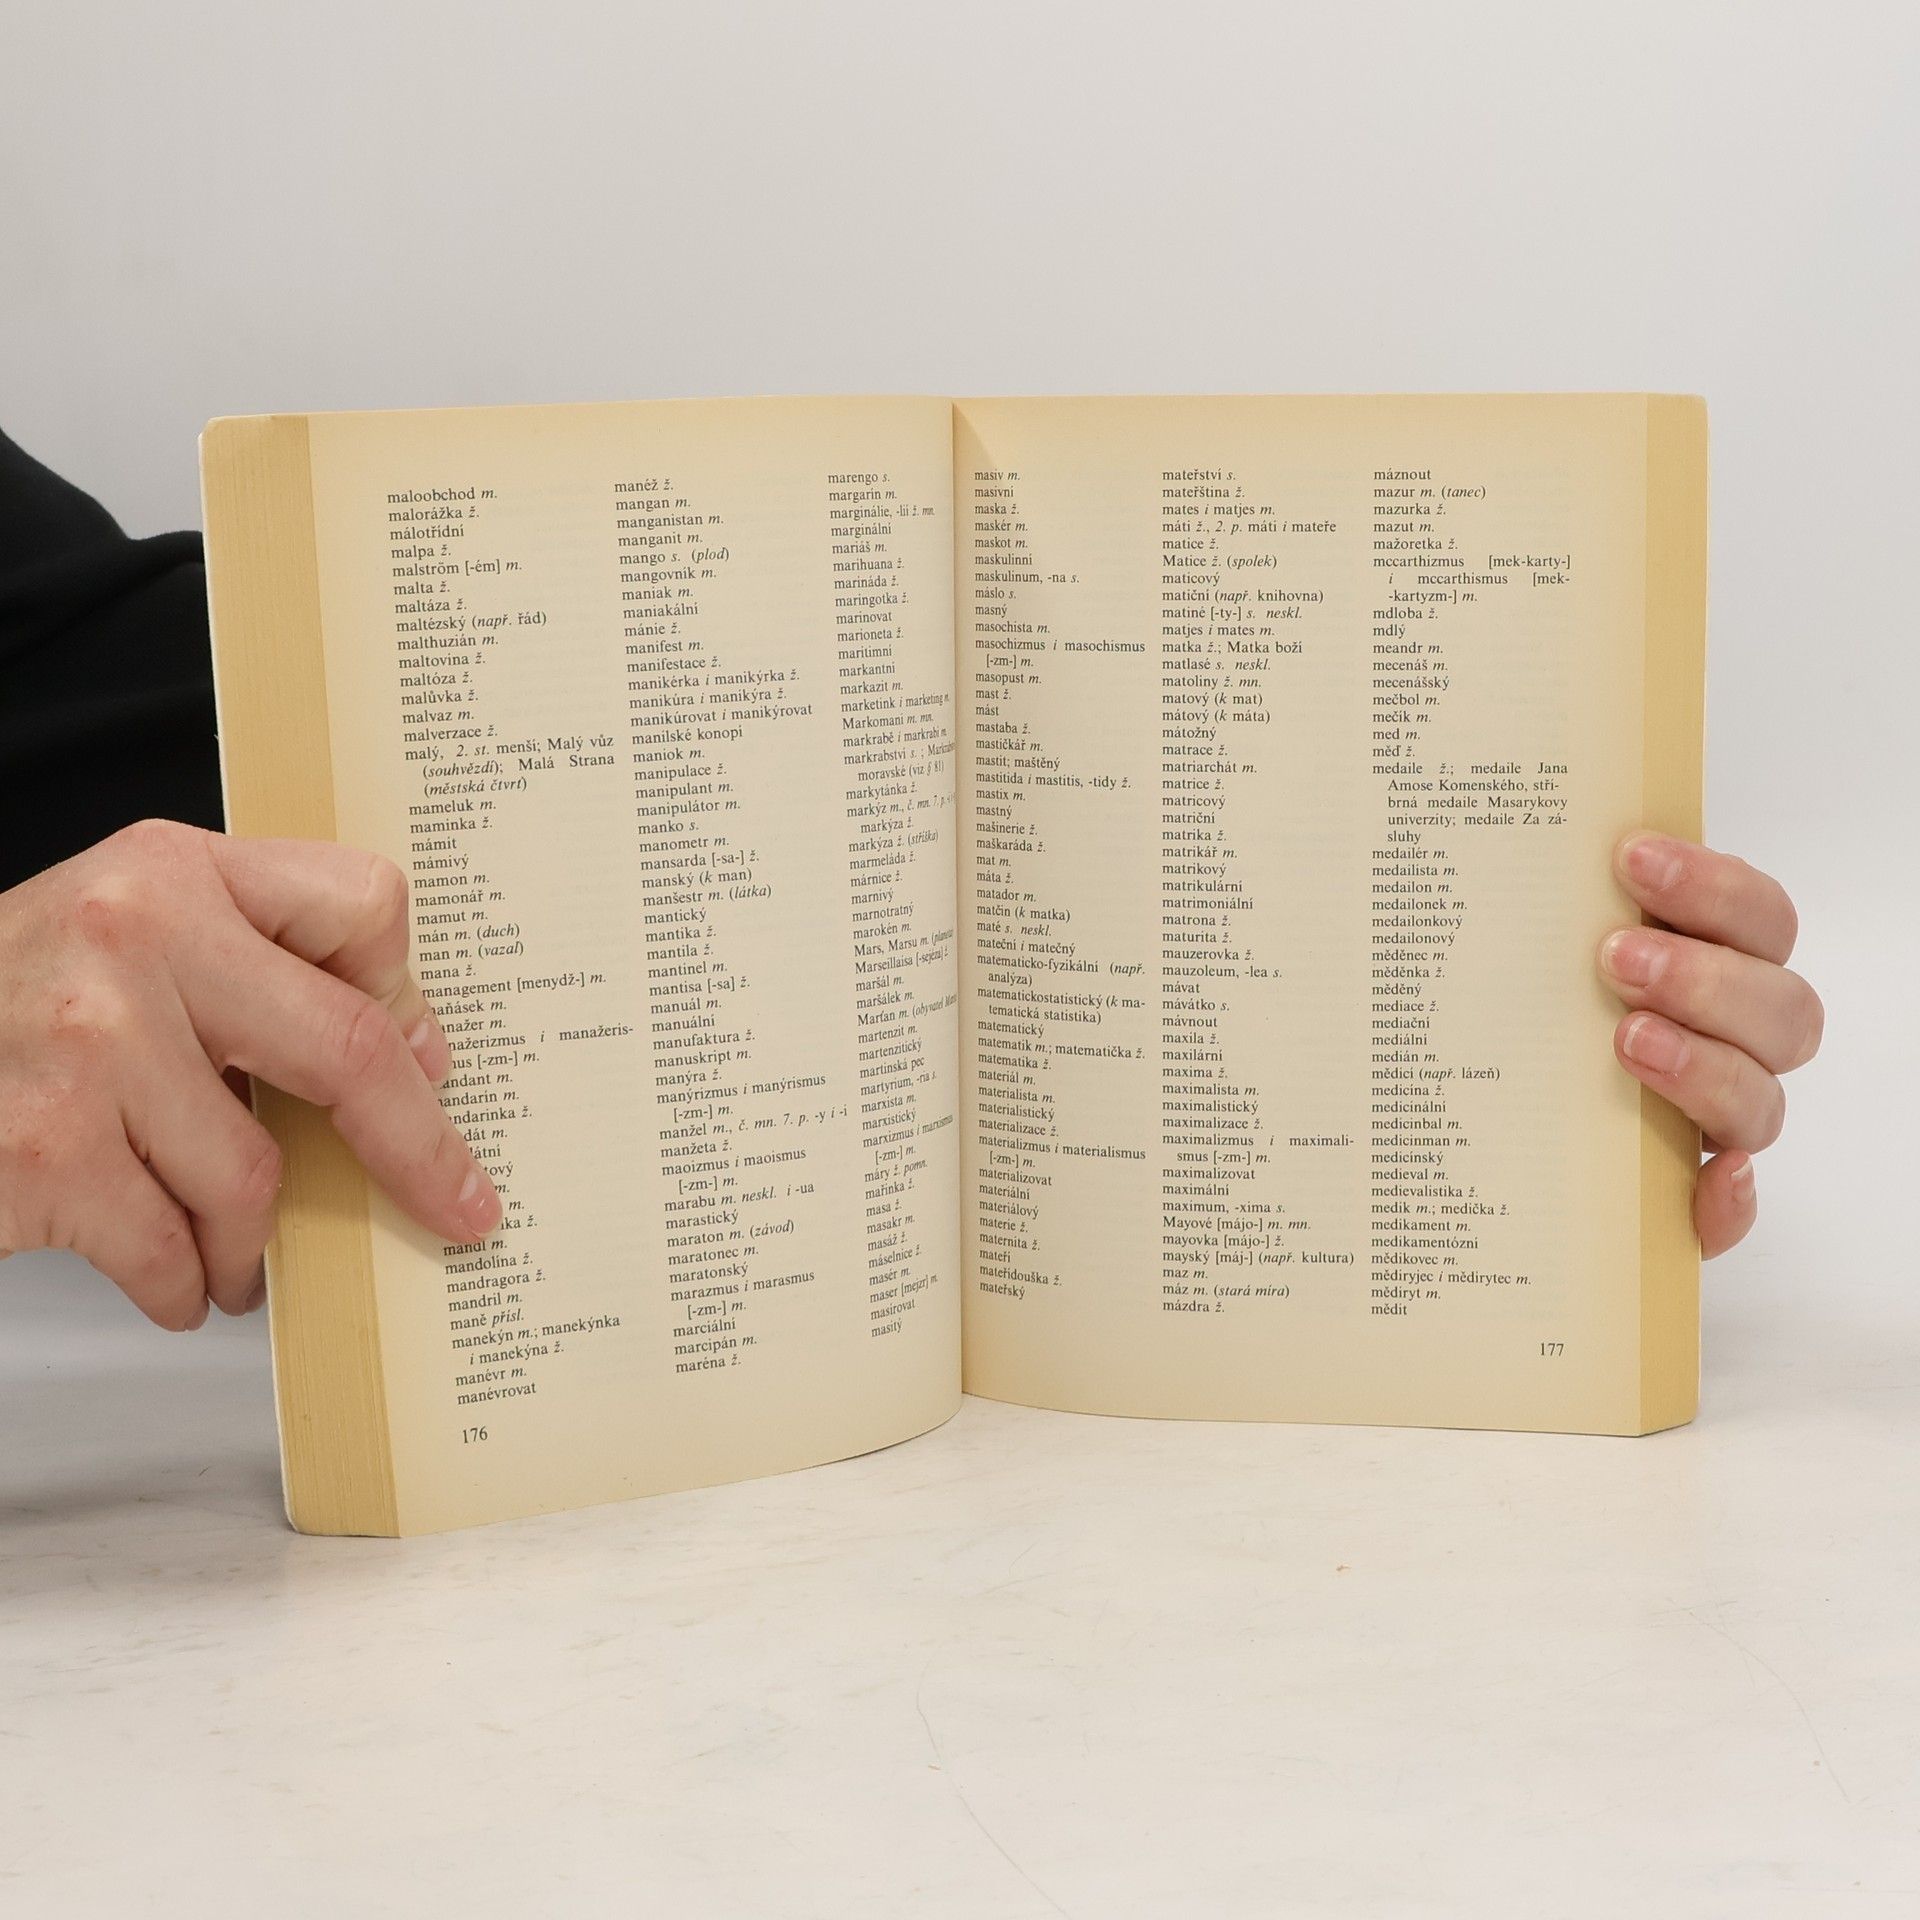 maloobchod m.
malorážka ž.
málotřídní
malpa ž.
malström [-ém] m.
malta ž.
maltáza ž.
maltézský (např. řád)
malthuzián m.
maltovina ž.
maltóza ž.
malůvka ž.
malvaz m.
malverzace ž.
malý, 2. st. menší; Malý vůz
(souhvězdí); Malá Strana
(městská čtvrť)
mameluk m.
maminka ž.
mámit
mámivý
mamon m.
mamonář m.
mamut m.
mán m. (duch)
man m. (vazal)
mana ž.
management [menydž-] m.
i manažeris-
[-zm-] m.
m.
m.
ž.
m.
m.
m.
ž.
mandl m.
mandolína ž.
mandragora ž.
mandril m.
maně přísl.
manekýn m.; manekýnka
i manekýna ž.
manévr m.
manévrovat
176
manéž ž.
mangan m.
manganistan m.
manganit m.
mango s. (plod)
mangovník m.
maniak m.
maniakální
mánie ž.
manifest m.
manifestace ž.
manikérka i manikýrka ž.
manikúra i manikýra ž.
manikúrovat i manikýrovat
manilské konopí
maniok m.
manipulace ž.
manipulant m.
manipulátor m.
manko s.
manometr m.
mansarda [-sa-] ž.
manský (k man)
manšestr m. (látka)
mantický
mantika ž.
mantila ž.
mantinel m.
mantisa [-sa] ž.
manuál m.
manuální
manufaktura ž.
manuskript m.
manýra ž.
manýrizmus i manýrismus
[-zm-] m.
manžel m., č. mn. 7. p. -y i -i
manžeta ž.
maoizmus i maoismus
[-zm-] m.
marabu m. neskl. i -ua
marastický
maraton m. (závod)
maratonec m.
maratonský
marazmus i marasmus
[-zm-] m.
marciální
marcipán m.
maréna ž.
marengo s.
margarín m.
marginálie, -lií ž. mn.
marginální
mariáš m.
marihuana ž.
marináda ž.
maringotka ž.
marinovat
marioneta ž.
maritimní
markantní
markazit m.
marketink i marketing m.
Markomani m. mn.
markrabě i markrabí m.
markrabství s. ;
moravské (viz § 81)
markytánka ž.
markýz m., č. mn. 7. p.
markýza ž.
markýza ž. (stříška)
marmeláda ž.
márnice ž.
marnivý
marnotratný
marokén m.
Mars, Marsu m. (planeta)
Marseillaisa [-sejéza] ž.
maršál m.
maršálek m.
Marťan m. (obyvatel
martenzit m.
martenzitický
martinská pec
martyrium, -ria s.
marxista m.
marxistický
marxizmus i marxismus
[-zm-] m.
máry ž. pomn.
mařinka ž.
masa ž.
masakr m.
masáž ž.
máselnice ž.
masér m.
maser [mejzr] m.
masírovat
masitý
masiv m.
masivní
maska ž.
maskér m.
maskot m.
maskulinní
maskulinum, -na s.
máslo s.
masný
masochista m.
masochizmus i masochismus
[-zm-] m.
masopust m.
mast ž.
mást
mastaba ž.
mastičkář m.
mastit; maštěný
mastitida i mastitis, -tidy ž.
mastix m.
mastný
mašinerie ž.
maškaráda ž.
mat m.
máta ž.
matador m.
matčin (k matka)
maté s. neskl.
mateční i matečný
matematicko-fyzikální (např.
analýza)
matematickostatistický (k ma-
tematická statistika)
matematický
matematik m.; matematička ž.
matematika ž.
materiál m.
materialista m.
materialistický
materializace ž.
materializmus i materialismus
[-zm-] m.
materializovat
materiální
materiálový
materie ž.
maternita ž.
mateří
mateřídouška ž.
mateřský
mateřství s.
mateřština ž.
mates i matjes m.
máti ž., 2. p. máti i mateře
matice ž.
Matice ž. (spolek)
maticový
matiční (např. knihovna)
matiné [-ty-] s. neskl.
matjes i mates m.
matka ž.; Matka boží
matlasé s. neskl.
matoliny ž. mn.
matový (k mat)
mátový (k máta)
mátožný
matrace ž.
matriarchát m.
matrice ž.
matricový
matriční
matrika ž.
matrikář m.
matrikový
matrikulární
matrimoniální
matrona ž.
maturita ž.
mauzerovka ž.
mauzoleum, -lea s.
mávat
mávátko s.
mávnout
maxila ž.
maxilární
maxima ž.
maximalista m.
maximalistický
maximalizace ž.
maximalizmus i maximali-
smus [-zm-] m.
maximalizovat
maximální
maximum, -xima s.
Mayové [májo-] m. mn.
mayovka [májo-] ž.
mayský [máj-] (např. kultura)
maz m.
máz m. (stará míra)
mázdra ž.
máznout
mazur m. (tanec)
mazurka ž.
mazut m.
mažoretka ž.
mccarthizmus [mek-karty-]
i mccarthismus [mek-
-kartyzm-] m.
mdloba ž.
mdlý
meandr m.
mecenáš m.
mecenášský
mečbol m.
mečík m.
med m.
měď ž.
medaile ž.; medaile Jana
Amose Komenského, stří-
brná medaile Masarykovy
univerzity; medaile Za zá-
sluhy
medailér m.
medailista m.
medailon m.
medailonek m.
medailonkový
medailonový
měděnec m.
měděnka ž.
měděný
mediace ž.
mediační
mediální
medián m.
mědicí (např. lázeň)
medicína ž.
medicinální
medicinbal m.
medicinman m.
medicínský
medieval m.
medievalistika ž.
medik m.; medička ž.
medikament m.
medikamentózní
mědikovec m.
mědiryjec i mědirytec m.
mědiryt m.
mědit
177